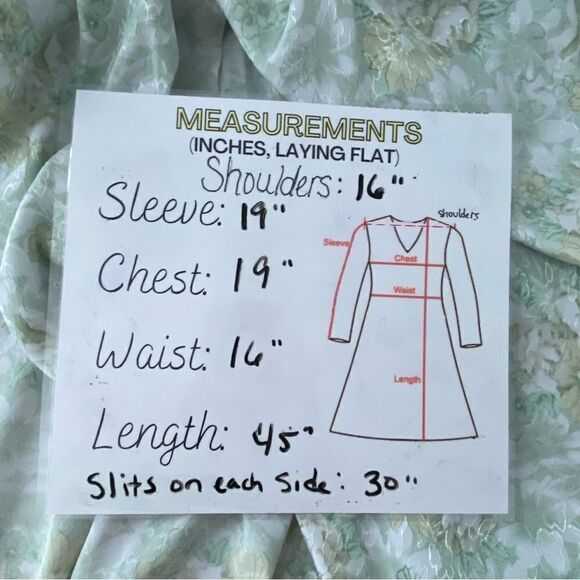 MEASUREMENTS
(INCHES, LAYING FLAT)
Shoulders: 16"
Sleeve: 19"
Shoulders
Sleeve
Chest
Chest: 19"
Waist
Waist: 16"
Length
Length: 45"
Slits on each Side: 30"